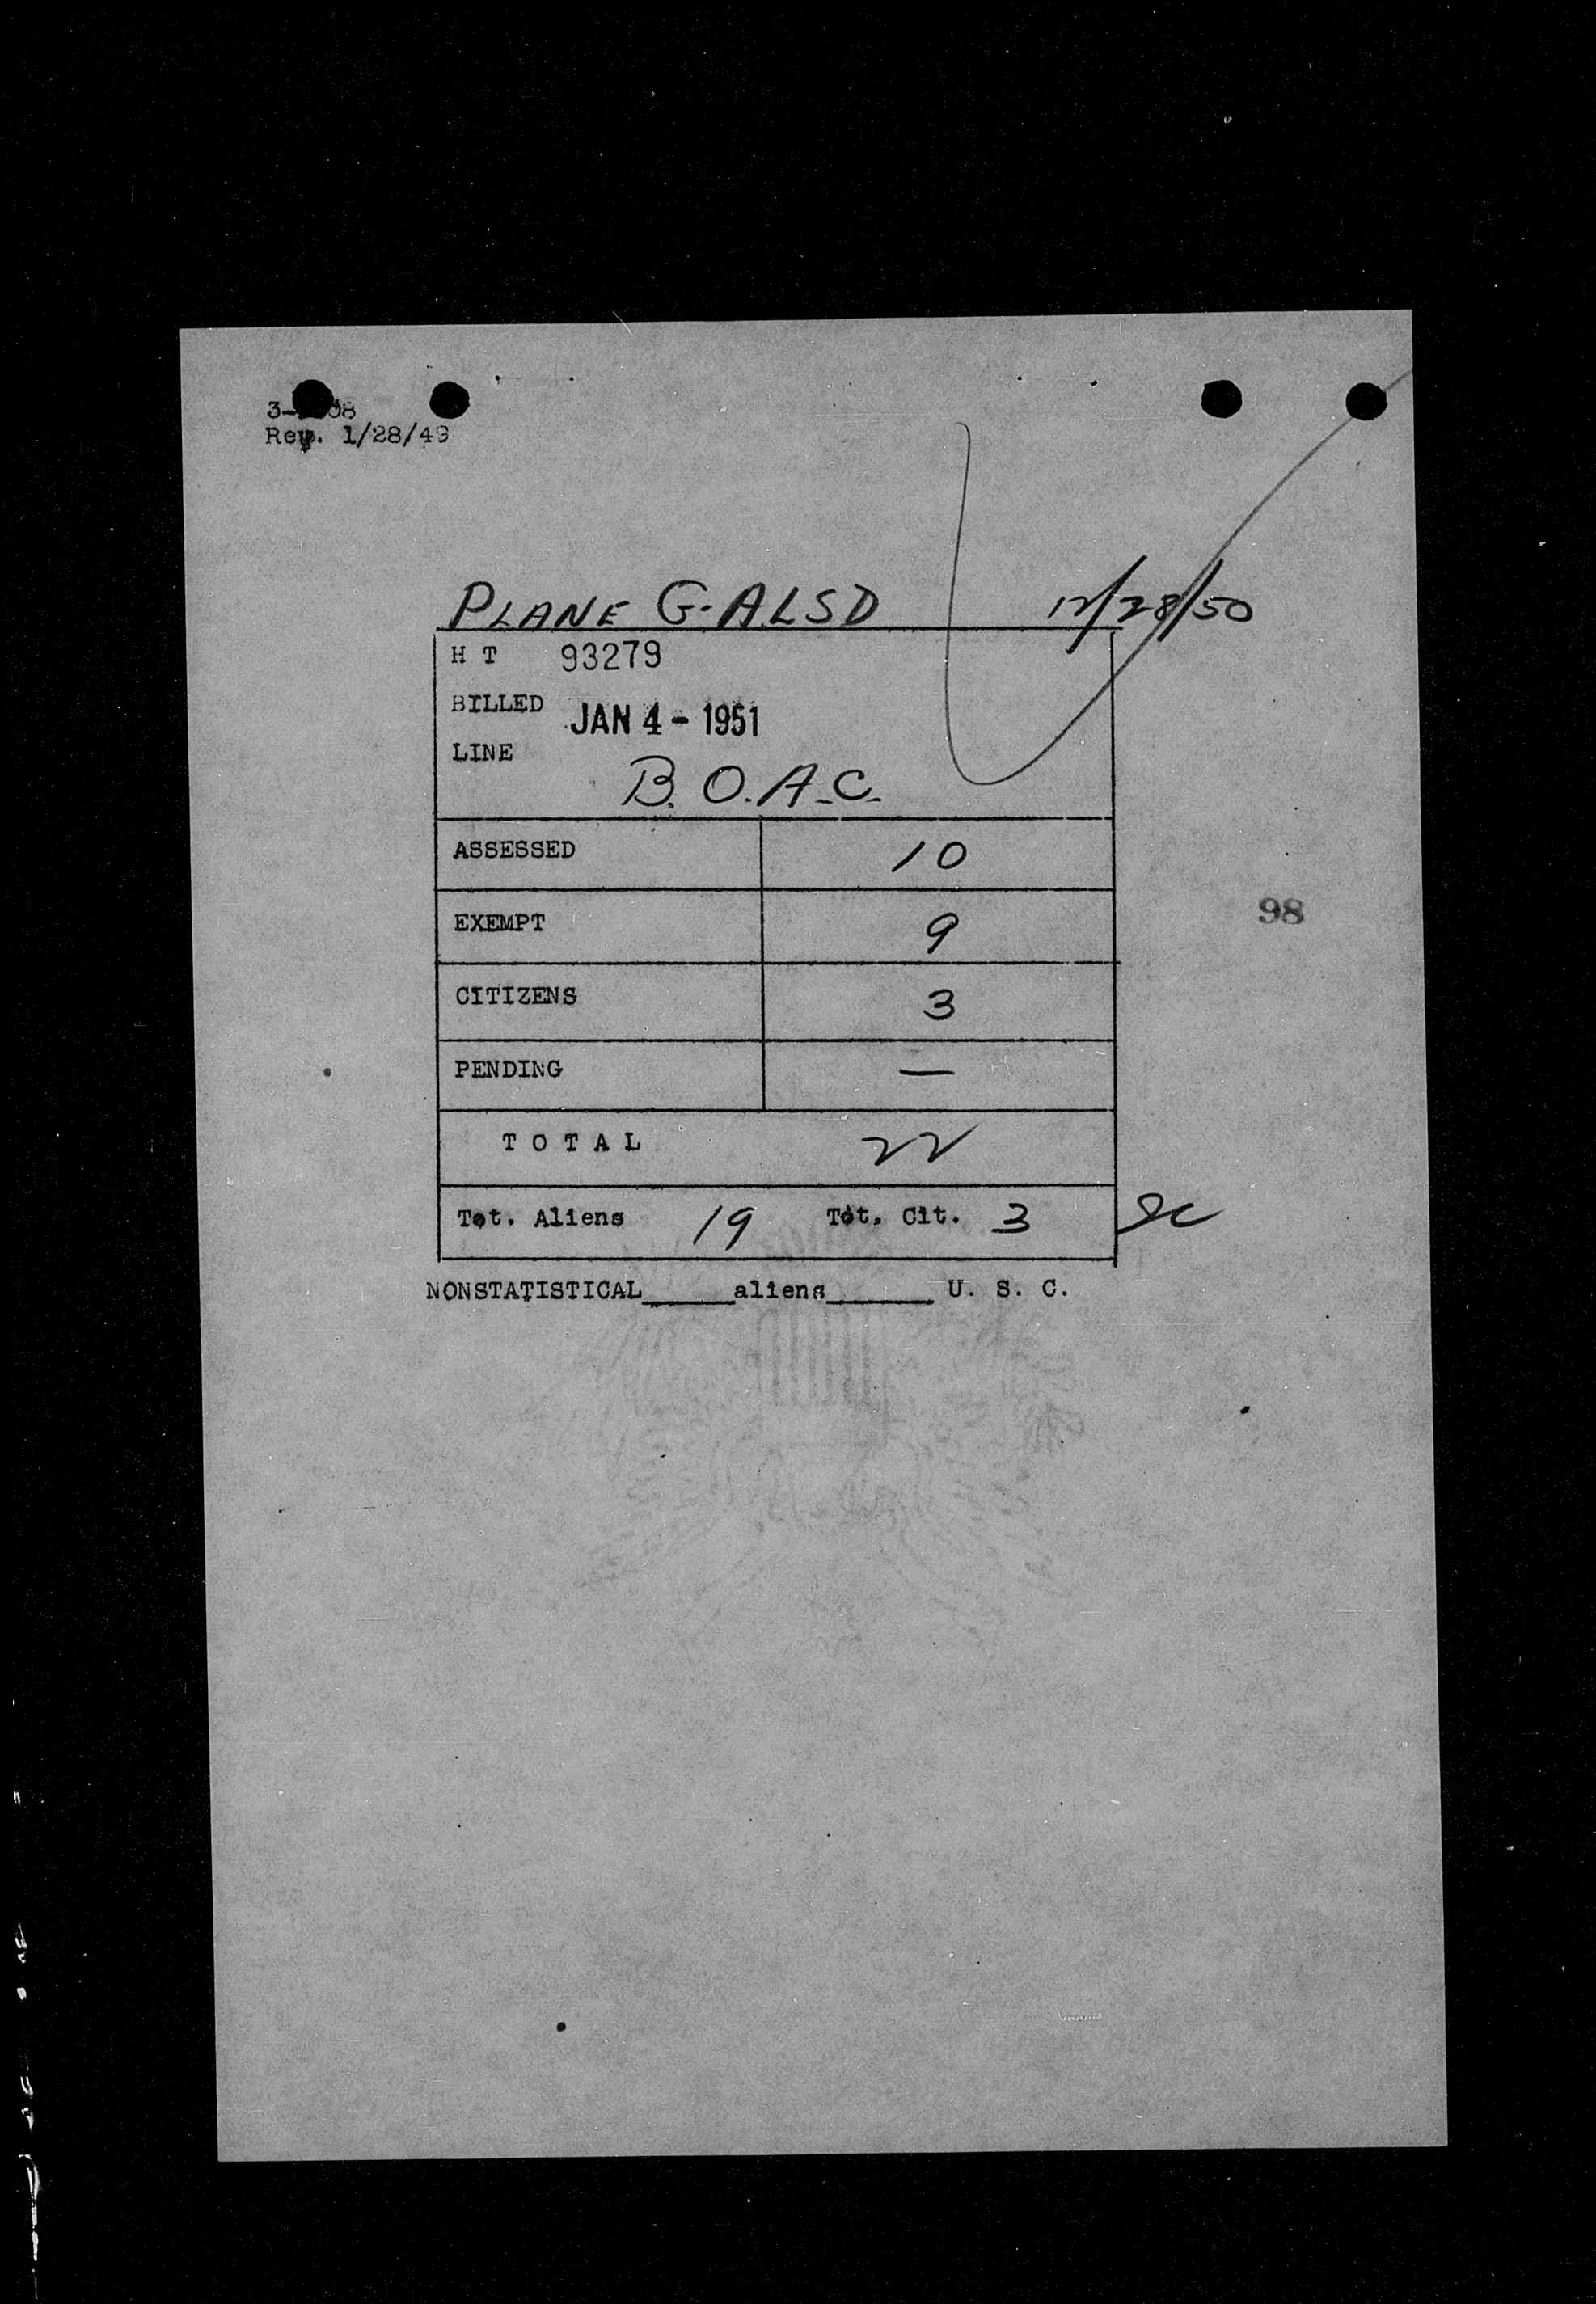 Rev. 1/28/49
PLANE G-ALSD 12/28/50
H T 93279
BILLED JAN 4 - 1951
LINE
B.O.A.C.
ASSESSED 10
EXEMPT 9
98
CITIZENS 3
PENDING —
TOTAL 22
Tot. Aliens 19 Tot. Cit. 3
NONSTATISTICAL_____aliens______ U. S. C.